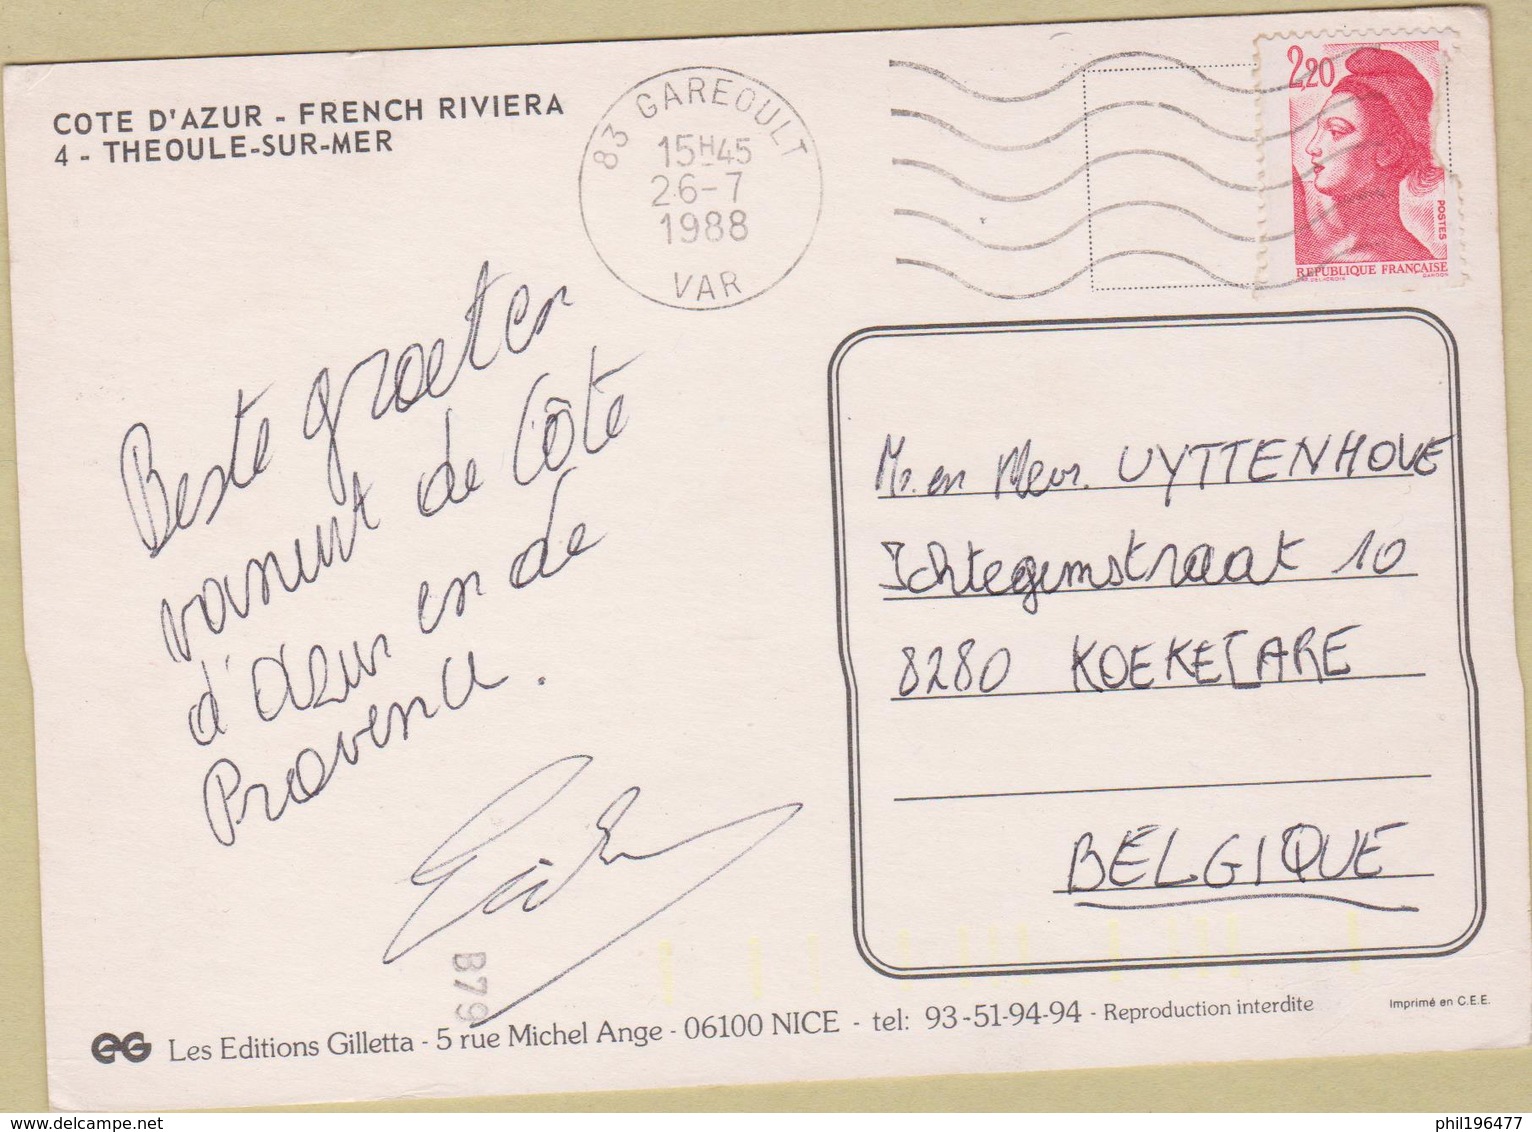 COTE D'AZUR - FRENCH RIVIERA
4 - THEOULE-SUR-MER
83 GAREOULT
15H45
26-7
1988
VAR
2,20
POSTES
REPUBLIQUE FRANÇAISE
GANDON
Beste groeten
vanuit de Côte
d'azur en de
Provence.
Mr. en Mevr. UYTTENHOVE
Ichtegemstraat 10
8280 KOEKELARE
BELGIQUE
B79
Les Editions Gilletta - 5 rue Michel Ange - 06100 NICE - tel: 93-51-94-94 - Reproduction interdite
Imprimé en C.E.E.
delcampe.net
phil196477